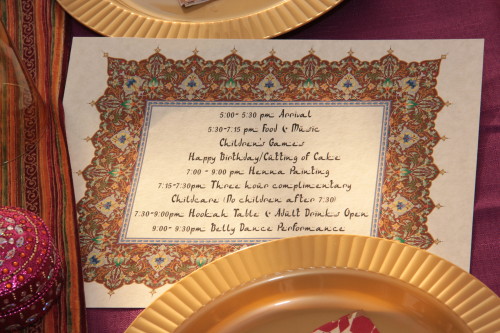 5:00- 5:30 pm Arrival
5:30-7:15 pm Food & Music
Children's Games
Happy Birthday/Cutting of Cake
7:00 - 9:00 pm Henna Painting
7:15-7:30pm Three hour complimentary
Childcare (No children after 7:30)
7:30-9:00pm Hookah Table & Adult Drinks Open
9:00- 9:30pm Belly Dance Performance